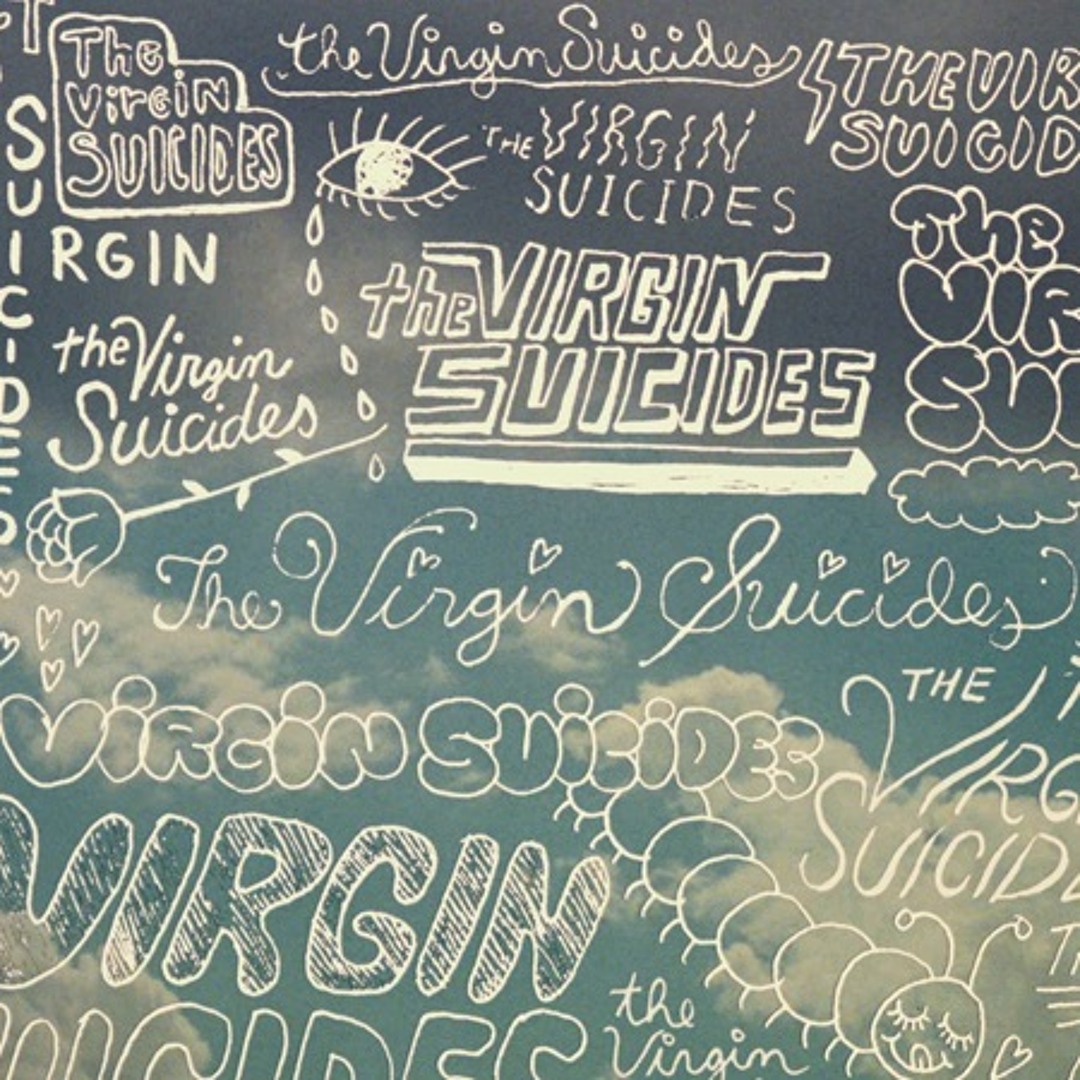 The
Virgin
SUICIDES
the Virgin Suicides
THE VIR
SUICID
THE VIRGIN
SUICIDES
SUICIDES
IRGIN
the VIRGIN
SUICIDES
The
VIR
SUI
the Virgin
Suicides
The Virgin Suicides
THE
VIRG
SUICIDE
VIRGIN SUICIDES
VIRGIN
SUICIDES
the
Virgin